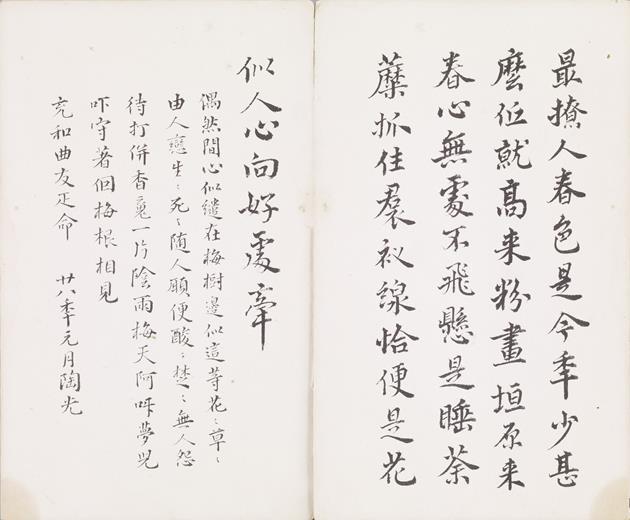 最撩人春色是今年少甚
麼低就高来粉畫垣原来
春心無處不飛懸是睡荼
蘼抓住裠衩線恰便是花
似人心向好處牽
偶然間心似繾在梅樹邊似這等花〻草〻
由人戀生〻死〻随人願便酸〻楚〻無人怨
待打併香魂一片陰雨梅天阿呀夢兒
吓守著個梅根相見
充和曲友疋命 廿八年元月陶光